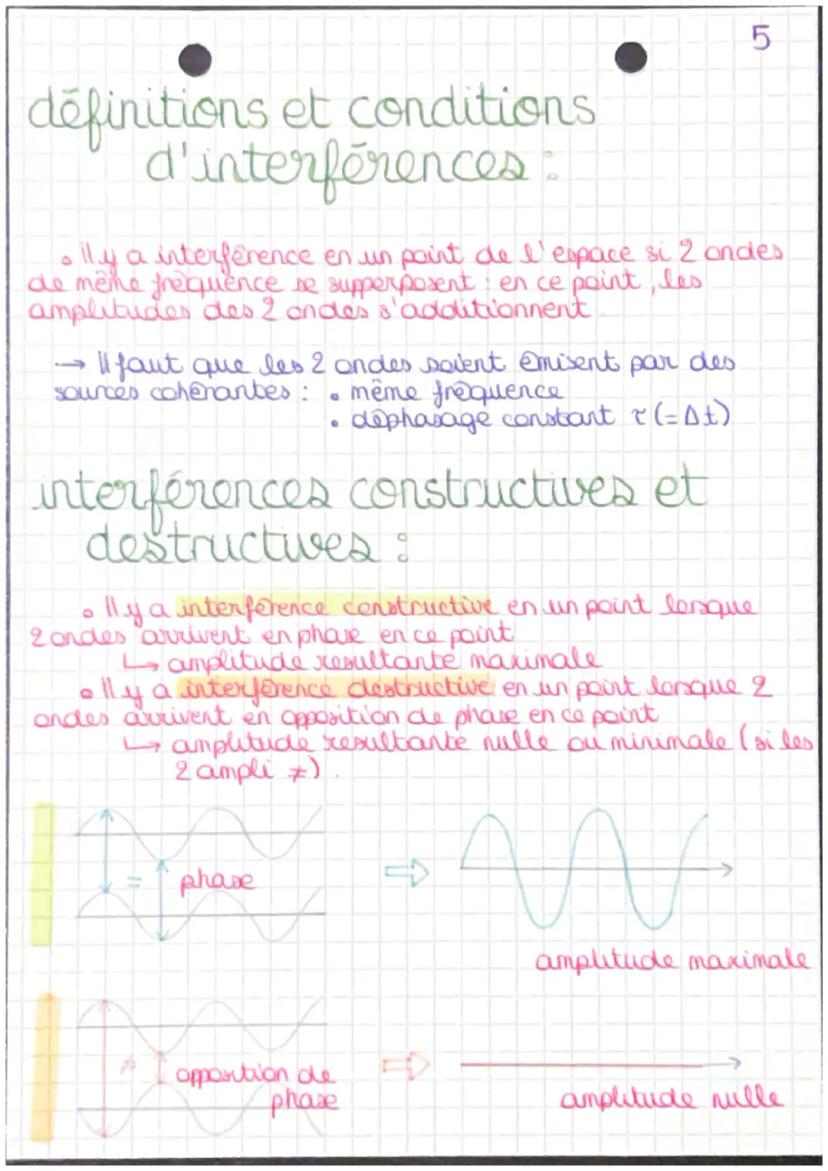 5
définitions et conditions
d'interférences :
• il y a interférence en un point de l'espace si 2 ondes
de même fréquence se supperposent : en ce point, les
amplitudes des 2 ondes s'additionnent
→ Il faut que les 2 ondes soient émisent par des
sources cohérantes : • même fréquence
• déphasage constant τ (= Δt)
interférences constructives et
destructives :
• Il y a interférence constructive en un point lorsque
2 ondes arrivent en phase en ce point
↳ amplitude resultante maximale
• Il y a interférence destructive en un point lorsque 2
ondes arrivent en opposition de phase en ce point
↳ amplitude resultante nulle ou minimale (si les
2 ampli ≠).
= phase ⇨
amplitude maximale
≠ opposition de ⇨
phase
amplitude nulle